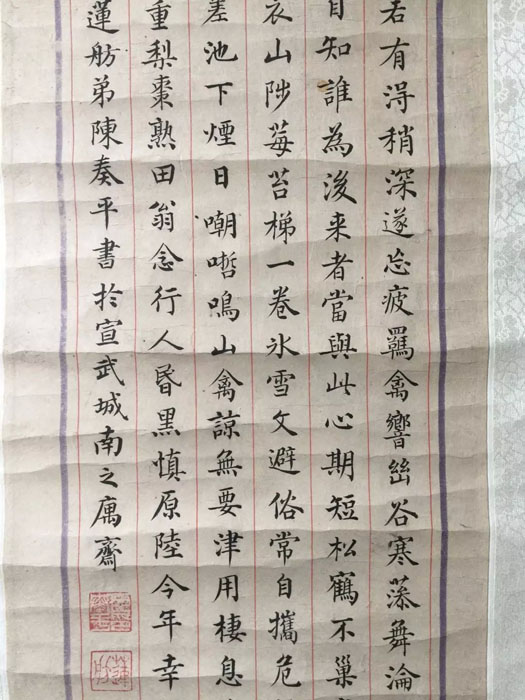 若有淂稍深遂忘疲羈禽響幽谷寒藻舞淪
自知誰為後来者當與此心期短松鶴不巢
衣山陟莓苔梯一卷氷雪文避俗常自攜危
差池下煙日嘲哳鳴山禽諒無要津用棲息
重梨棗熟田翁念行人昬黑慎原陸今年幸
蓮舫弟陳奏平書於宣武城南之寓齋